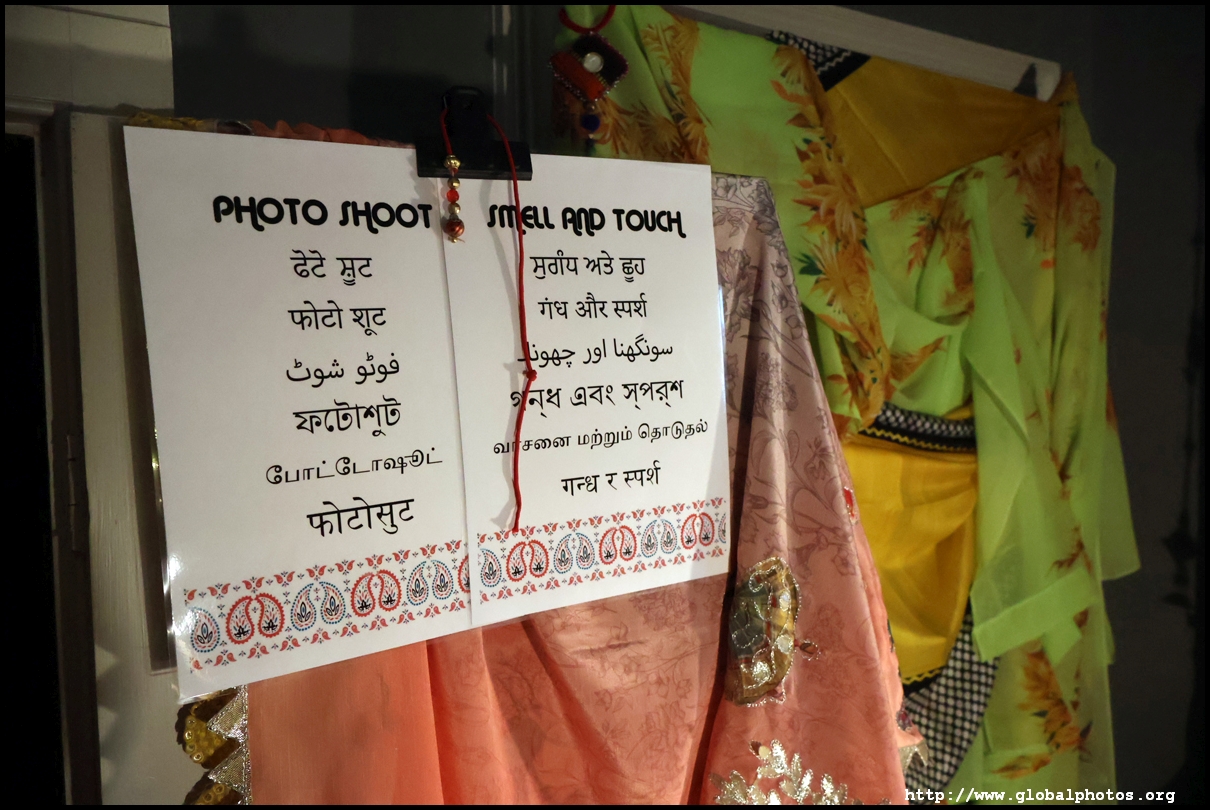 PHOTO SHOOT
ਫੋਟੋ ਸ਼ੂਟ
फोटो शूट
فوٹو شوٹ
ফটোশুট
போட்டோஷூட்
फोटोसुट
SMELL AND TOUCH
ਸੁਗੰਧ ਅਤੇ ਛੂਹ
गंध और स्पर्श
سونگھنا اور چھونا
গন্‌ধ এবং স্‌পর্‌শ
வாசனை மற்றும் தொடுதல்
गन्ध र स्पर्श
http://www.globalphotos.org